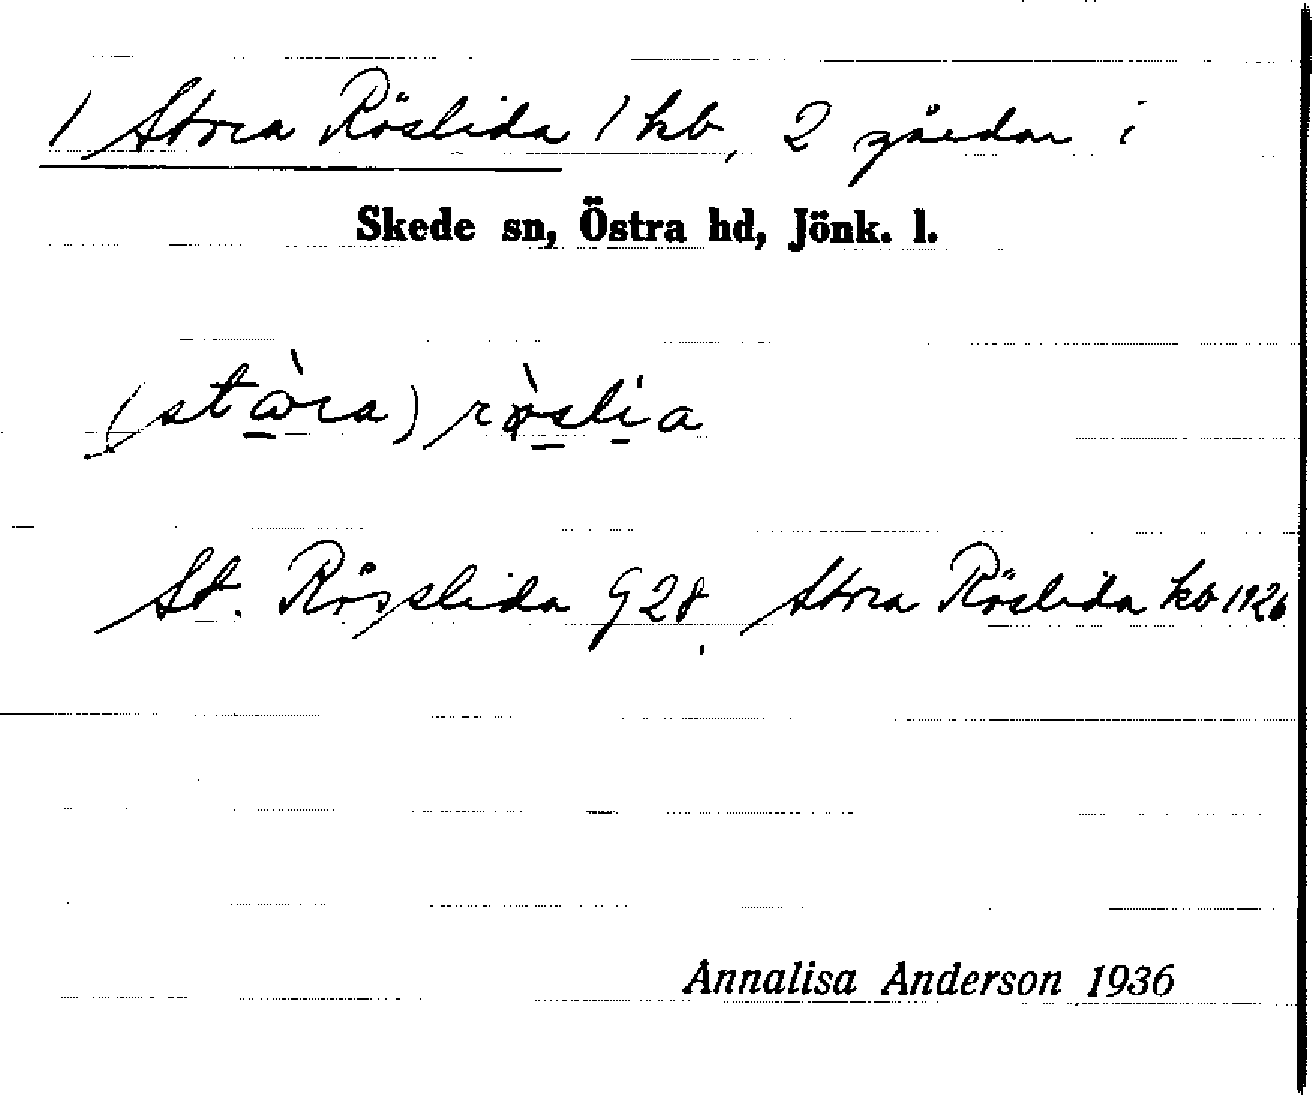 1 Stora Röslida 1 hb, 2 gårdar i
Skede sn, Östra hd, Jönk. l.
(stɷ̀ra) rø̀slia
St. Rösslida G 28, Stora Röslida kb 1926
Annalisa Anderson 1936